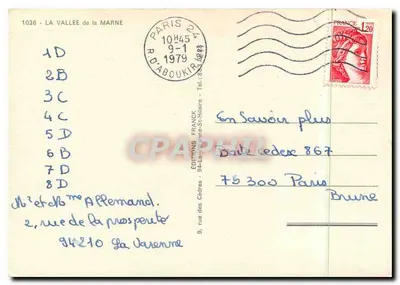 1036 - LA VALLEE de la MARNE
PARIS 24
10H45
9-1
1979
R. D'ABOUKIR
FRANCE
1,20
1D
2B
3C
4C
5D
6B
7D
8D
Mr et Mme Allemand.
2, rue de la prosperité
94210 La Varenne
EDITIONS FRANCK
9, rue des Cèdres - 94-La
St-Hilaire - Tel
En Savoir plus
Boite cedex 867
75300 Paris
Brune